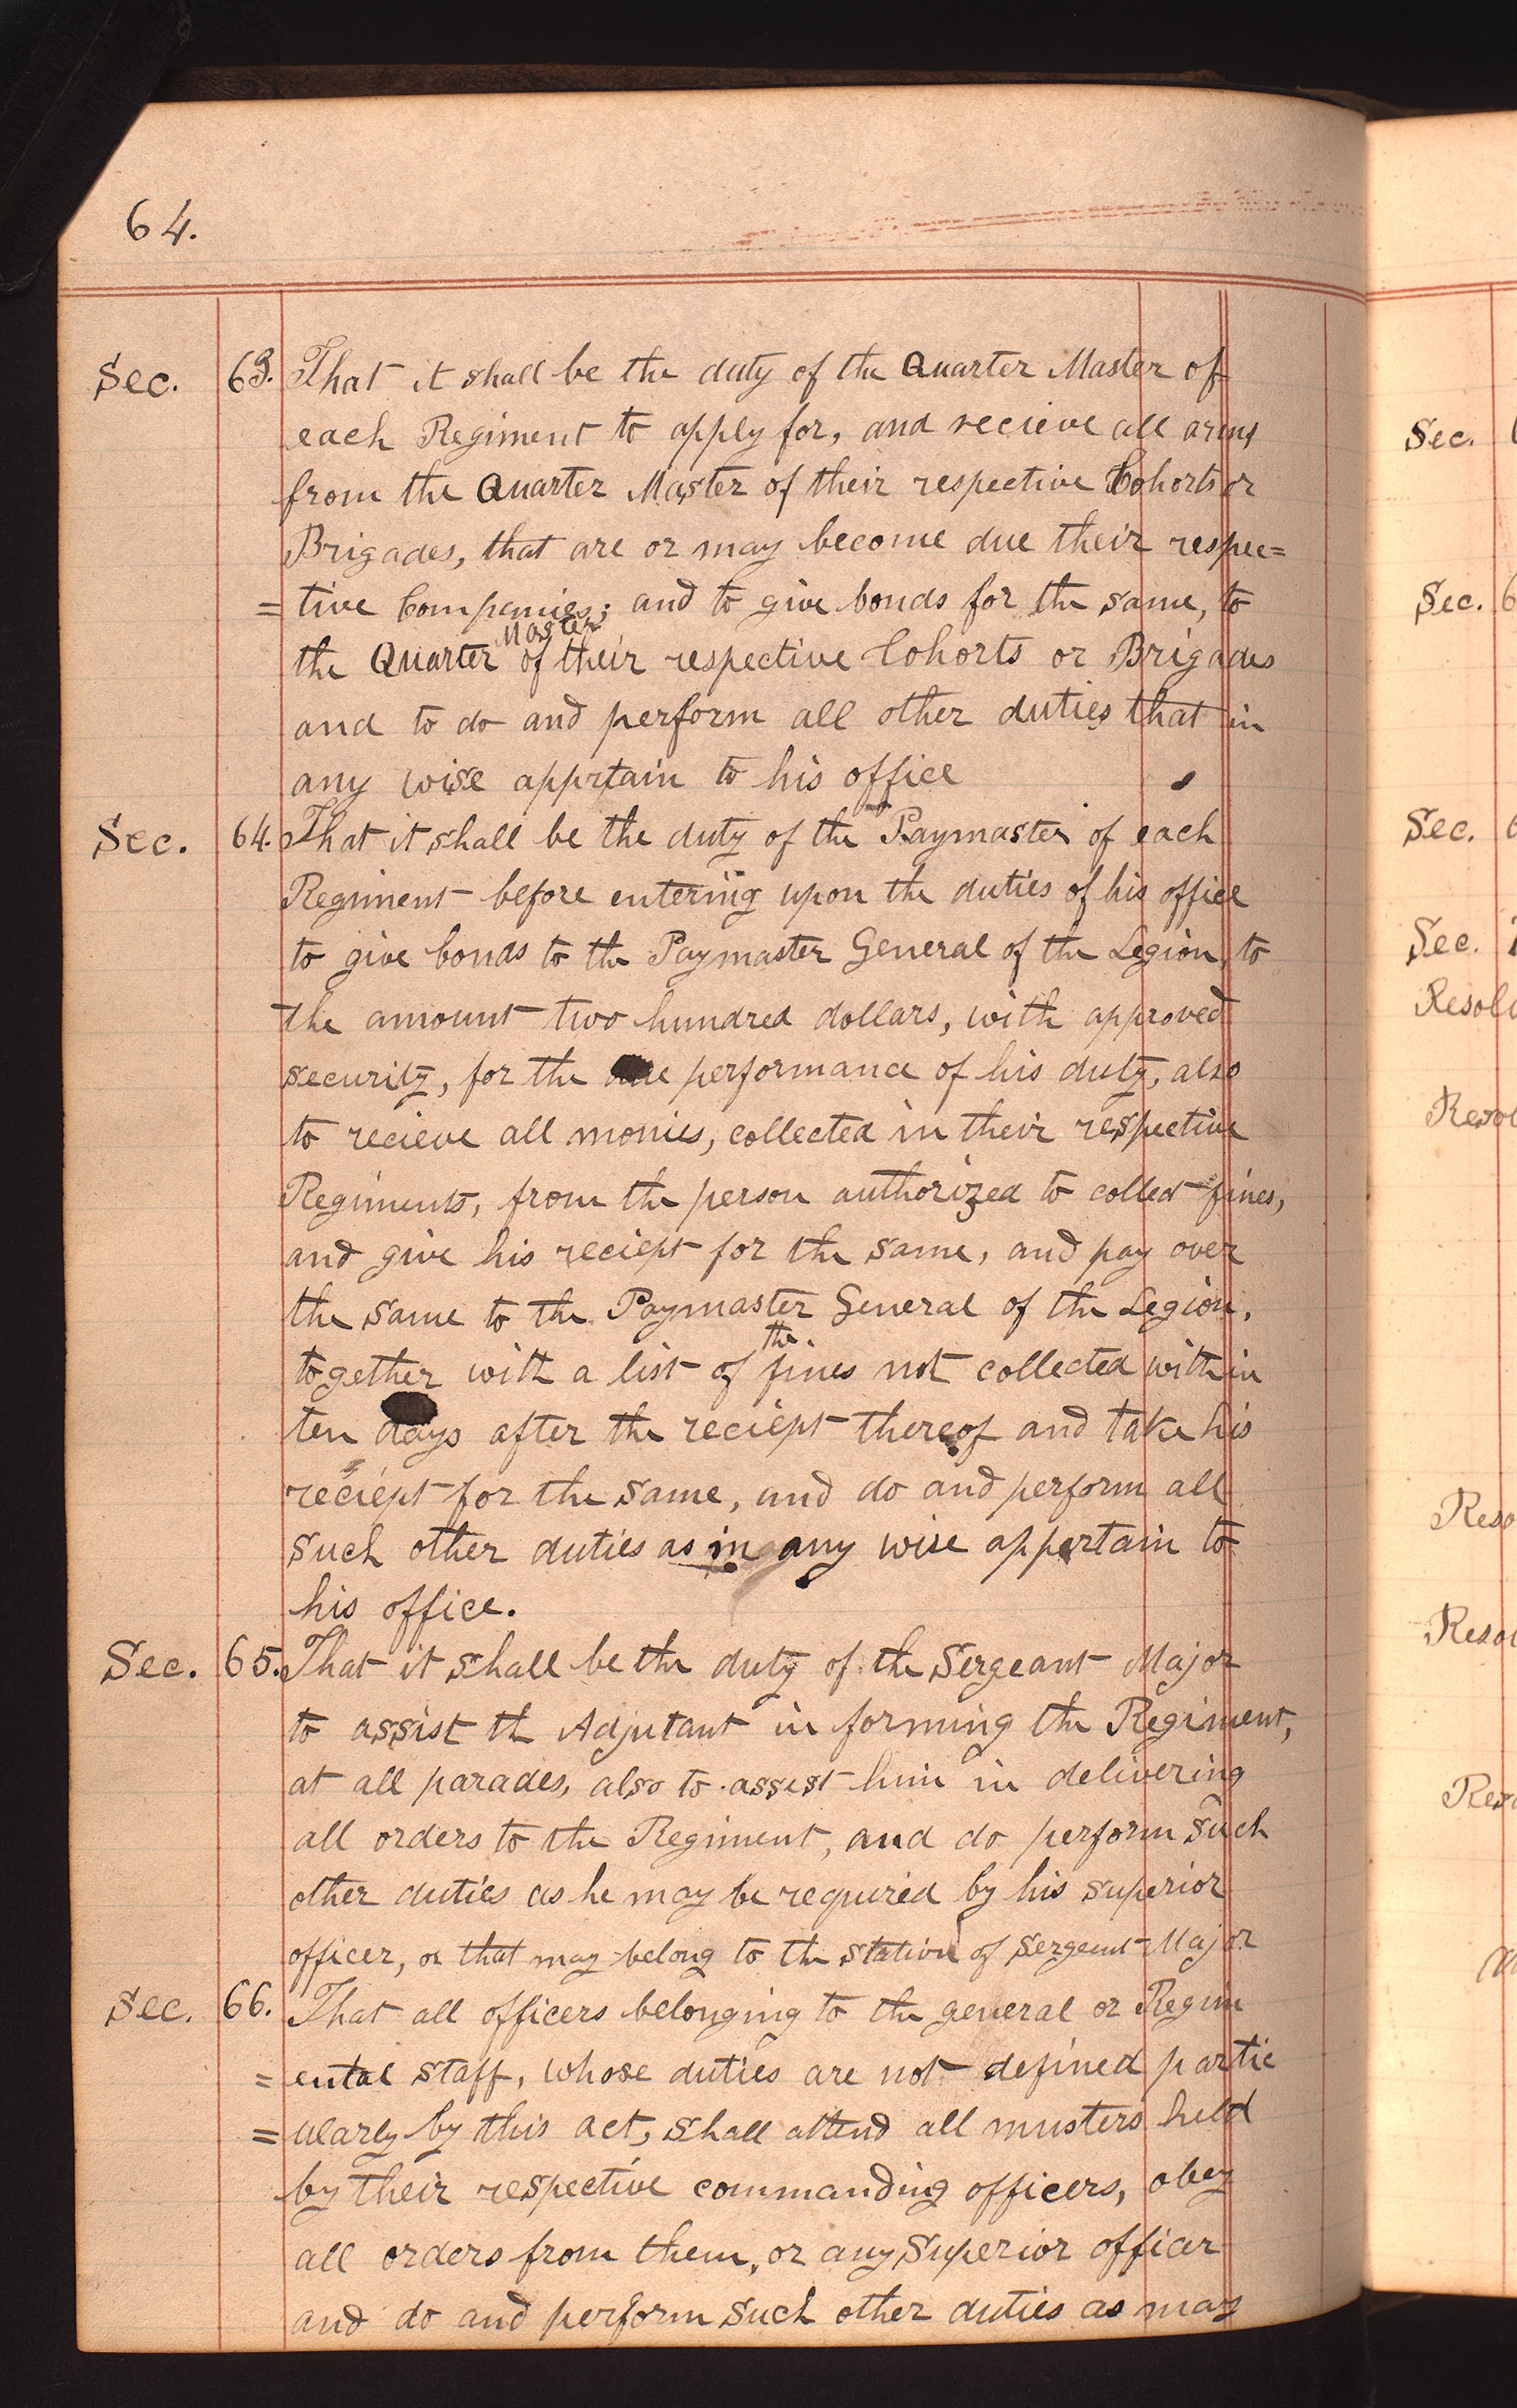 64.
Sec. 63. That it shall be the duty of the Quarter Master of
each Regiment to apply for, and recieve all arms
from the Quarter Master of their respective Cohorts or
Brigades, that are or may become due their respec=
=tive Companies; and to give bonds for the same, to
the Quarter Master of their respective Cohorts or Brigades
and to do and perform all other duties that in
any wise apprtain to his office
Sec. 64. That it shall be the duty of the Paymaster of each
Regiment before entering upon the duties of his office
to give bonds to the Paymaster General of the Legion, to
the amount two hundred dollars, with approved
security, for the due performance of his duty, also
to recieve all monies, collected in their respective
Regiments, from the person authorized to collect fines,
and give his reciept for the same, and pay over
the same to the Paymaster General of the Legion,
together with a list of the fines not collected within
ten days after the reciept thereof and take his
reciept for the same, and do and perform all
such other duties as in any wise appertain to
his office.
Sec. 65. That it shall be the duty of the Sergeant Major
to assist th Adjutant in forming the Regiment,
at all parades, also to assist him in delivering
all orders to the Regiment, and do perform such
other duties as he may be required by his superior
officer, or that may belong to the station of Sergeant Major
Sec. 66. That all officers belonging to the general or Regim
=ental staff, whose duties are not defined partic
=ularly by this act, shall attend all musters held
by their respective commanding officers, obey
all orders from them, or any Superior officer
and do and perform such other duties as may
Sec.
Sec. 6
Sec.
Sec.
Resol
Resol
Reso
Resol
Reso